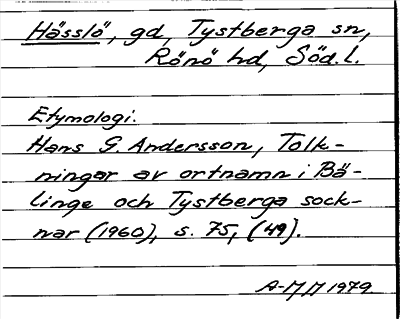 Hässlö, gd, Tystberga sn,
Rönö hd, Söd. l.
Etymologi.
Hans G. Andersson, Tolk-
ningar av ortnamn i Bä-
linge och Tystberga sock-
nar (1960), s. 75, (49).
A-MM 1979